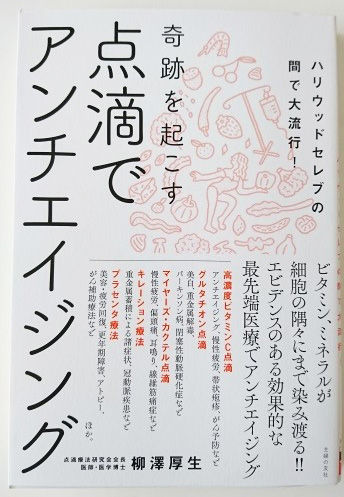 ハリウッドセレブの
間で大流行！
奇跡を起こす
点滴で
アンチエイジング
ビタミン、ミネラルが
細胞の隅々にまで染み渡る!!
エビデンスのある効果的な
最先端医療でアンチエイジング
高濃度ビタミンC点滴
アンチエイジング、慢性疲労、帯状疱疹、がん予防など
グルタチオン点滴
美白、重金属解毒、
パーキンソン病、閉塞性動脈硬化症など
マイヤーズ・カクテル点滴
慢性疲労、偏頭痛、耳鳴り、線維筋痛症など
キレーション療法
重金属蓄積による諸症状、冠動脈疾患など
プラセンタ療法
美容・疲労回復、更年期障害、アトピー、
がん補助療法など
ほか。
点滴療法研究会会長
医師・医学博士
柳澤厚生
主婦の友社